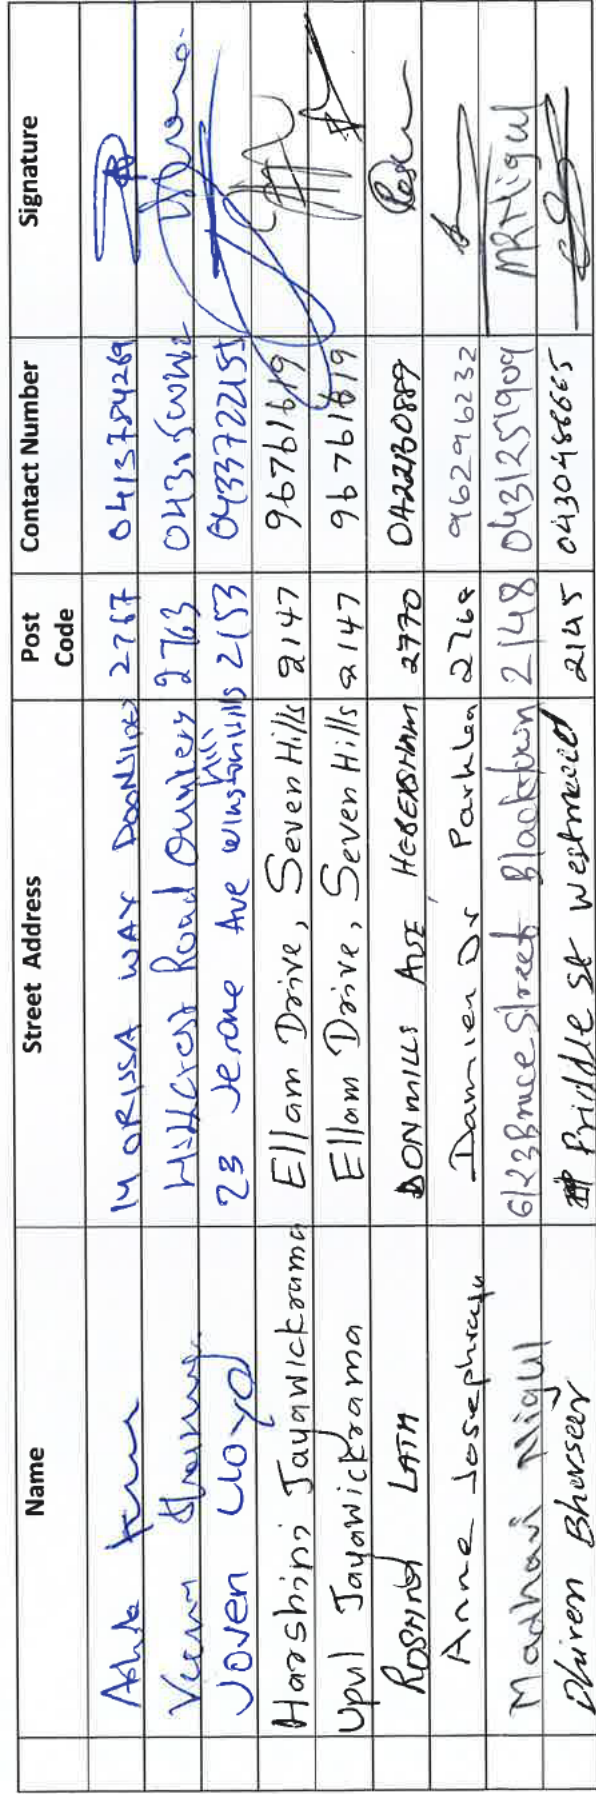 Name Street Address Post Code Contact Number Signature
14 ORISSA WAY 2767 0413784269
Veena Sharma Hillcrest Road Quakers Hill 2763
Joven Lloyd 23 Jerome Ave Winston Hills 2153 0433722155
Harshini Jayawickrama Ellam Drive, Seven Hills 2147 96761619
Upul Jayawickrama Ellam Drive, Seven Hills 2147 96761619
LATA DONMILLS AVE HEBERSHAM 2770
Anne Josephraju Damien Dr Parklea 2768 96296232
Madhavi Nigul 6/23 Bruce Street Blacktown 2148 0431251909 MRNigul
Dhiren Bhorseer Priddle St Westmead 2145 0430486665